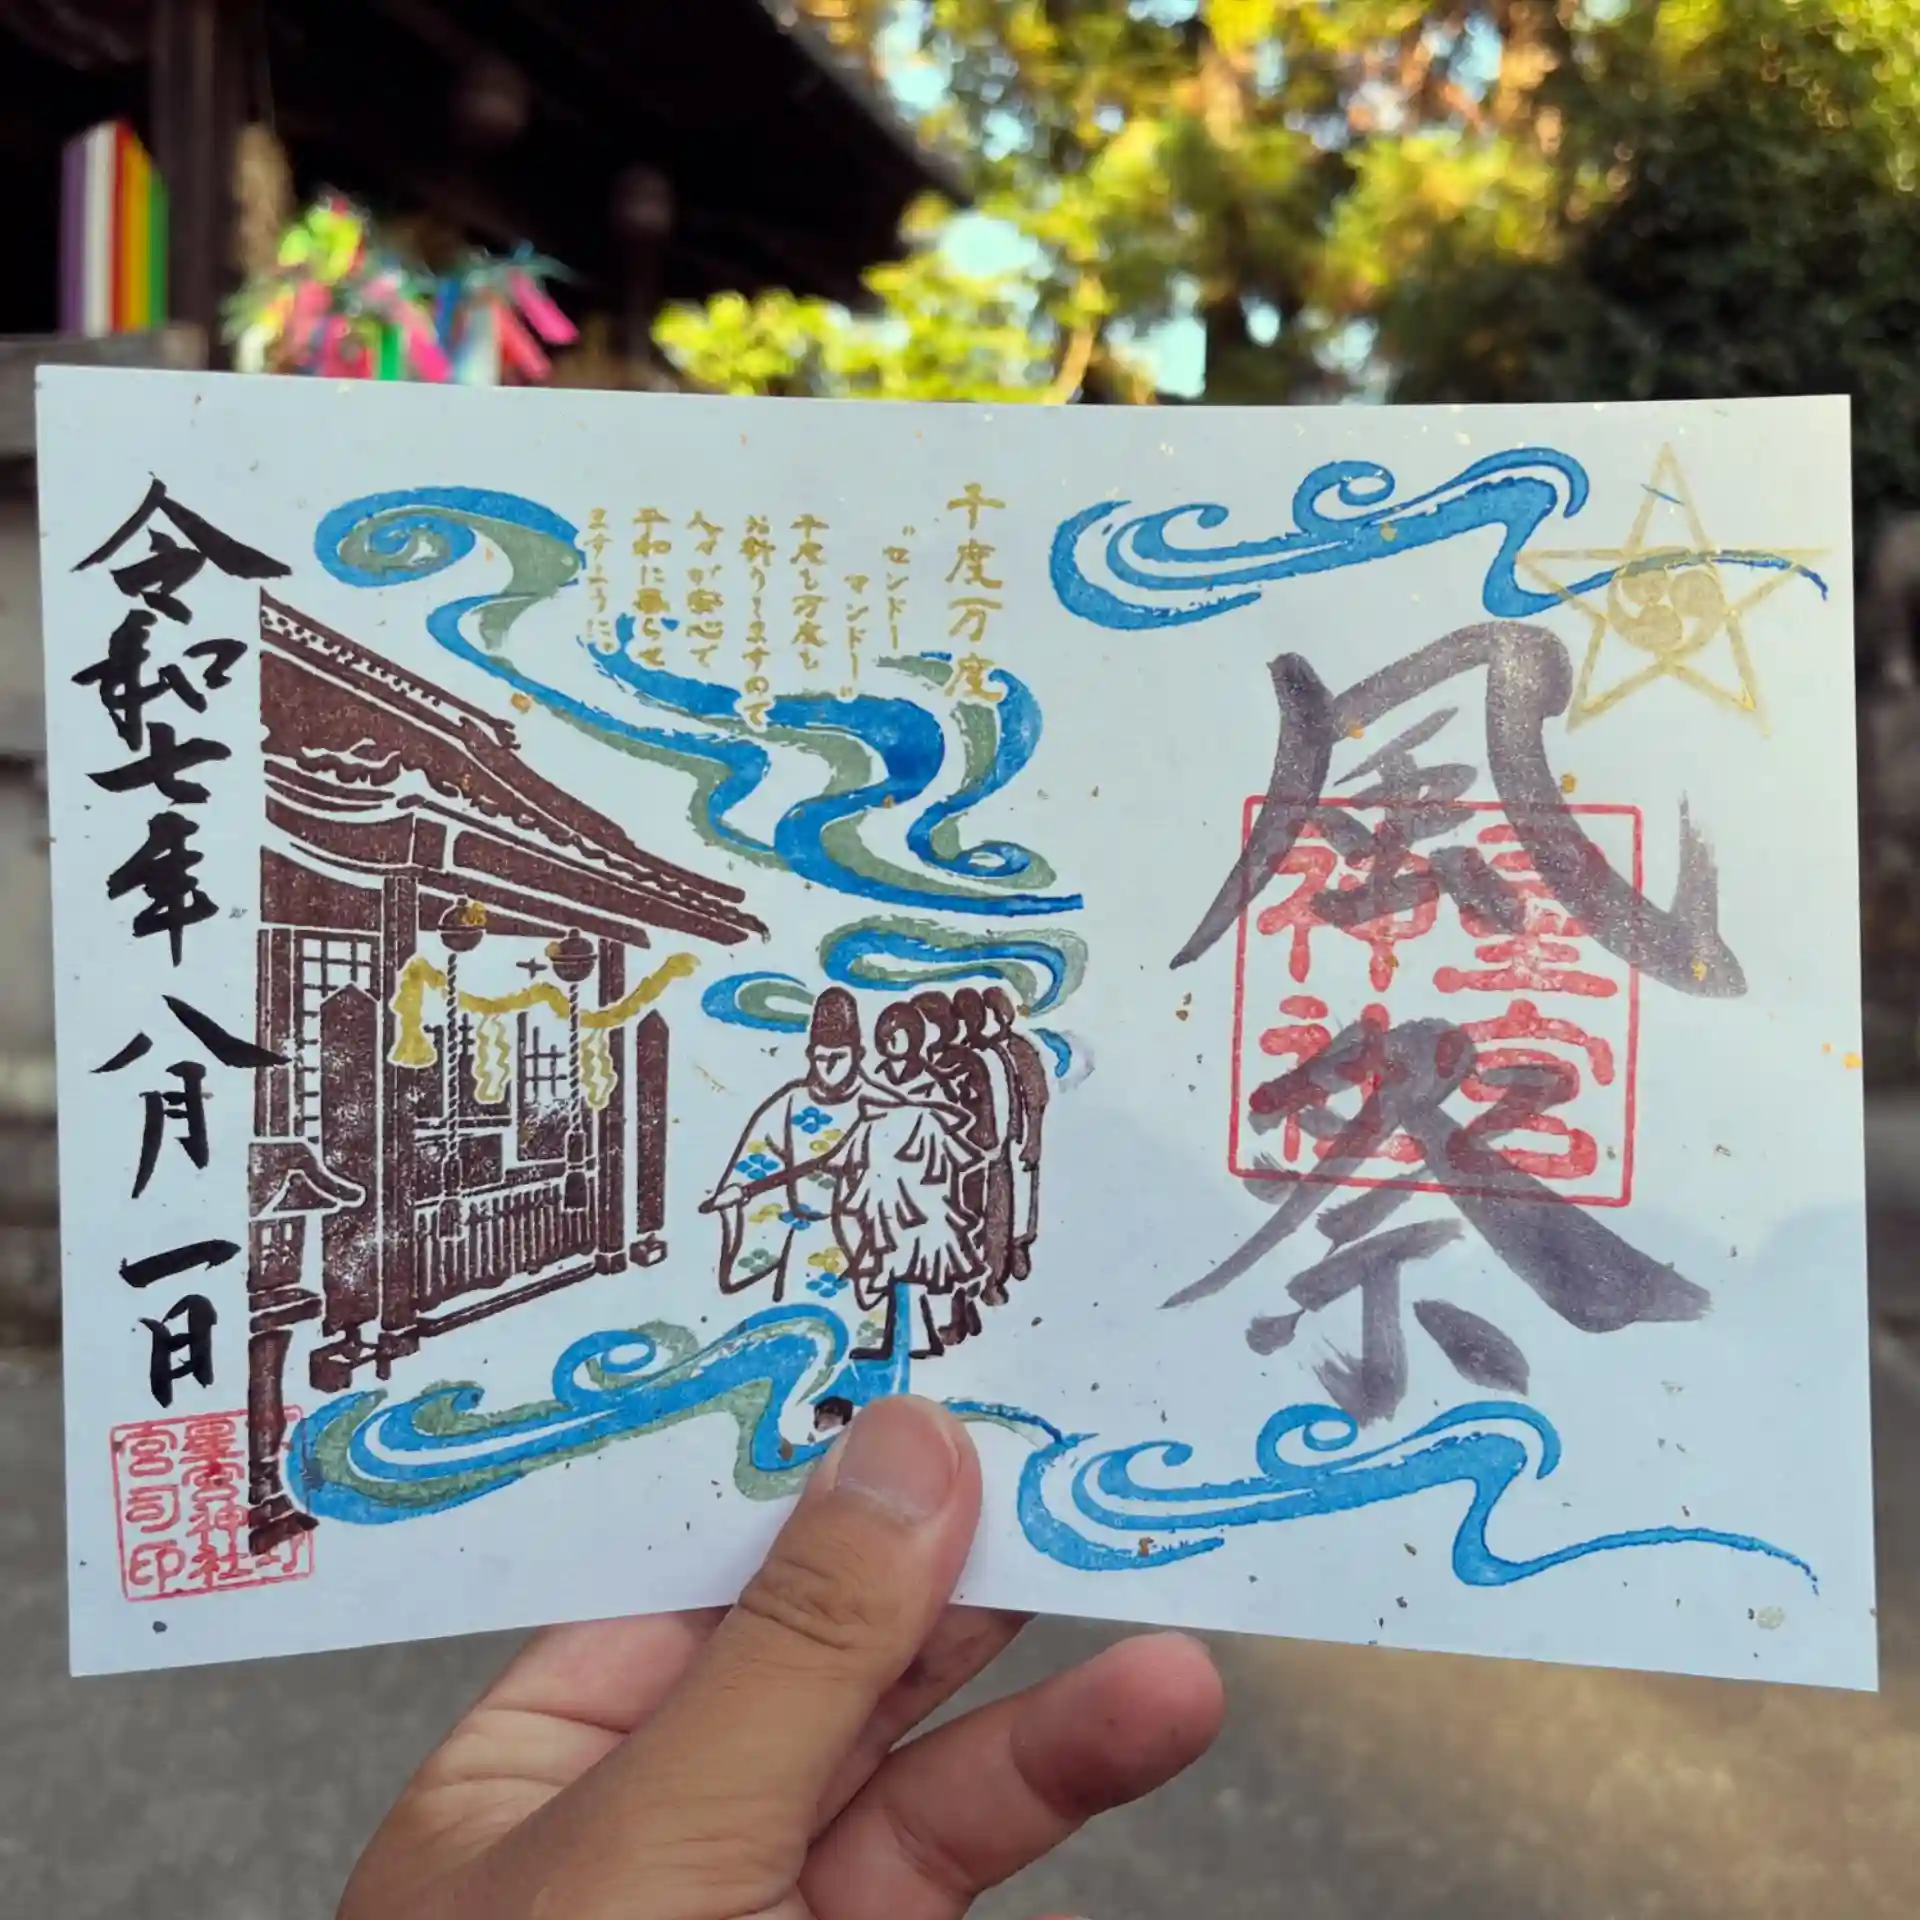 風祭
星宮
神社
千度万度
"センドー
マンドー"
千度も万度も
お祈りしますので
人々が安心で
平和に暮らせ
ますように。
令和七年八月一日
星宮神社
宮司印